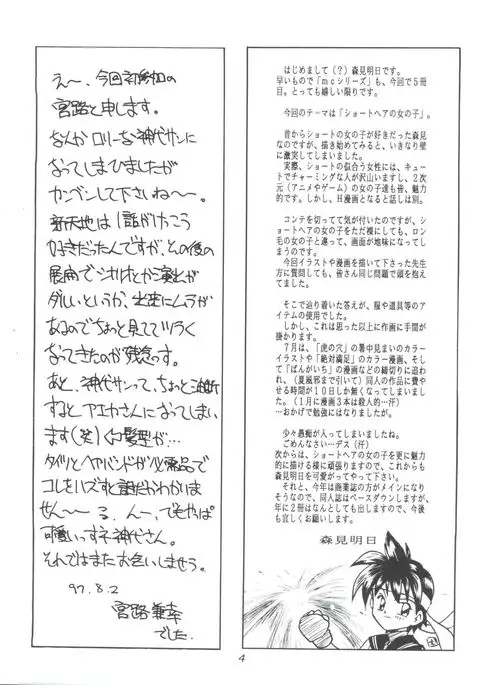 えー、今回初参加の
宮路と申します。
なんか ロリーな神代サンに
なってしまひましたが
カンベンして下さいね〜〜。
新天地は1話がけっこう
好きだったんですが、その後の
展開で シナリオとか演出が
ダルいというか、出来にムラが
あるのでちょっと見ててツラく
なってきたのが残念っす。
あと、神代サンって、ちょっと油断
すると アエカさんになってしまい
ます(笑)
タイツとヘアバンドが必需品で
コレをハズすと誰だかわかりま
せん〜〜 る。 んー、でもやっぱ
可愛いっすネ神代さん。
それではまたお会いしませう。
97.8.2
宮路兼幸
でした.
はじめまして(?)森見明日です。
早いもので「mcシリーズ」も、今回で5冊
目。とっても嬉しい限りです。
今回のテーマは「ショートヘアの女の子」。
昔からショートの女の子が好きだった森見
なのですが、描き始めてみると、いきなり壁
に激突してしまいました。
実際、ショートの似合う女性には、キュー
トでチャーミングな人が沢山いますし、2次
元(アニメやゲーム)の女の子達も皆、魅力
的です。しかし、H漫画となると話しは別。
コンテを切ってて気が付いたのですが、シ
ョートヘアの女の子をただ裸にしても、ロン
毛の女の子と違って、画面が地味になってし
まうのです。
今回イラストや漫画を描いて下さった先生
方に質問しても、皆さん同じ問題で頭を抱え
てました。
そこで辿り着いた答えが、服や道具等のア
イテムの使用でした。
しかし、これは思った以上に作画に手間が
掛かります。
7月は、「虎の穴」の暑中見まいのカラー
イラストや「絶対満足」のカラー漫画、そし
て「ばんがいち」の漫画などの締切りに追わ
れ、(夏風邪まで引いて)同人の作品に費や
せる時間が10日しか無くなってしまいまし
た。(1月に漫画3本は殺人的…汗)
…おかげで勉強にはなりましたが。
少々愚痴が入ってしまいましたね。
ごめんなさい…デス(汗)
次からは、ショートヘアーの女の子を更に魅力
的に描ける様に頑張りますので、これからも
森見明日を可愛がってやって下さい。
それと、今年は商業誌の方がメインになり
そうなので、同人誌はペースダウンしますが、
年に2冊はなんとしても出しますので、今後
も宜しくお願いします。
森見明日
4